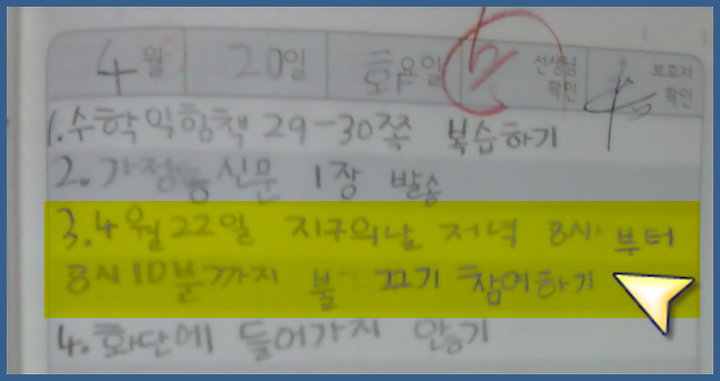 4월 20일 화요일 선생님 확인 보호자 확인
1. 수학익힘책 29-30쪽 복습하기
2. 가정통신문 1장 발송
3. 4월 22일 지구의날 저녁 8시 부터
8시 10분까지 불 끄기 참여하기
4. 화단에 들어가지 않기